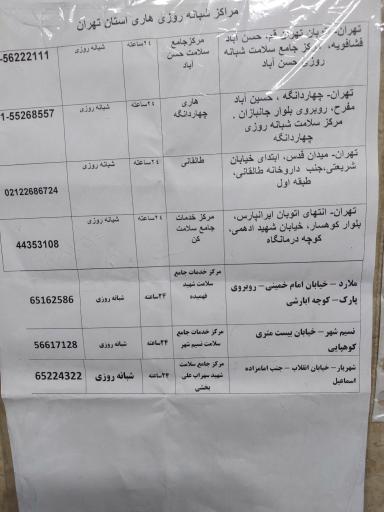 مراکز شبانه روزی هاری استان تهران
تهران- اتوبان تهران قم، حسن آباد
فشافویه، مرکز جامع سلامت شبانه
روزی حسن آباد
مرکزجامع
سلامت حسن
آباد
۲۴ساعته
شبانه روزی
-56222111
تهران- چهاردانگه ، حسین آباد
مفرح، روبروی بلوار جانبازان .
مرکز سلامت شبانه روزی
چهاردانگه
هاری
چهاردانگه
۲۴ساعته
شبانه روزی
1-55268557
تهران- میدان قدس، ابتدای خیابان
شریعتی،جنب داروخانه طالقانی،
طبقه اول
طالقانی
۲۴ساعته
شبانه روزی
02122686724
تهران- انتهای اتوبان ایرانپارس،
بلوار کوهسار، خیابان شهید ادهمی،
کوچه درمانگاه
مرکز خدمات
جامع سلامت
کن
۲۴ساعته
شبانه روزی
44353108
ملارد – خیابان امام خمینی – روبروی
پارک– کوچه ابارشی
مرکز خدمات جامع
سلامت شهید
فهمیده
۲۴ساعته
شبانه روزی
65162586
نسیم شهر – خیابان بیست متری
کوهپایی
مرکز خدمات جامع
سلامت نسیم شهر
۲۴ساعته
شبانه روزی
56617128
شهریار – خیابان انقلاب – جنب امامزاده
اسماعیل
مرکز جامع سلامت
شهید سهراب علی
بخشی
۲۴ساعته
شبانه روزی
65224322